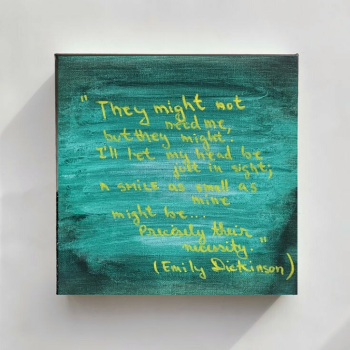 "They might not
need me,
but they might
I'll let my head be
just in sight;
A SMILE as small as
mine
might be...
Precisely their
necessity."
(Emily Dickinson)